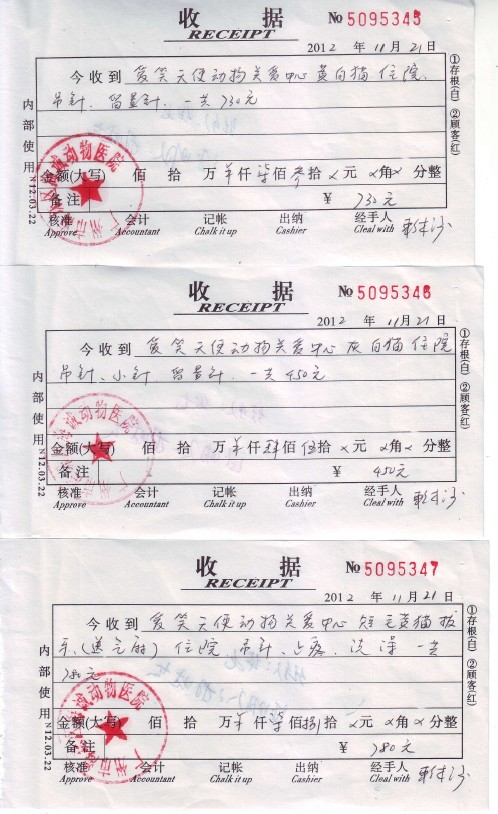 收 据 No 5095345
RECEIPT
2012 年 11月21日
今收到 爱笑天使动物关爱中心 黄白猫 住院、
吊针、留置针、一共730元
金额(大写) 佰 拾 万 羊 仟 柒 佰 叁 拾 × 元 × 角 × 分整
备注 ¥ 730元
核准 会计 记帐 出纳 经手人
Approve Accountant Chalk it up Cashier Cleal with
内部使用 N12.03.22
①存根(白) ②顾客(红)
诚动物医院
广州市
收 据 No 5095346
RECEIPT
2012 年 11月21日
今收到 爱笑天使动物关爱中心 灰白猫 住院
吊针、小针、留置针、一共450元
金额(大写) 佰 拾 万 羊 仟 肆 佰 伍 拾 × 元 × 角 × 分整
备注 ¥ 450元
核准 会计 记帐 出纳 经手人
Approve Accountant Chalk it up Cashier Cleal with
内部使用 N12.03.22
①存根(白) ②顾客(红)
诚动物医院
收 据 No 5095347
RECEIPT
2012 年 11月21日
今收到 爱笑天使动物关爱中心 短毛黄猫 拔
牙、住院 吊针、洗澡 一共
780元
金额(大写) 佰 拾 万 羊 仟 柒 佰 捌 拾 × 元 × 角 × 分整
备注 ¥ 780元
核准 会计 记帐 出纳 经手人
Approve Accountant Chalk it up Cashier Cleal with
内部使用 N12.03.22
①存根(白) ②顾客(红)
诚动物医院
广州市